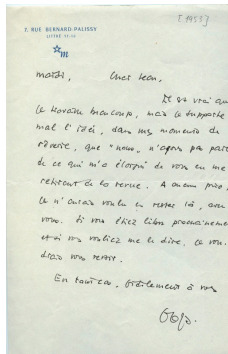 [1953]
7, RUE BERNARD-PALISSY
LITTRÉ
m
mardi,
Cher Jean,
Il est vrai que
je travaille beaucoup, mais je supporte
mal l'idée, dans mes moments de
rêverie, que "nous, n'ayons pas parlé
de ce qui m'a éloigné de vous en me
retirant de la revue. A aucun prix,
je n'aurais voulu en rester là, avec
vous. Si vous étiez libre prochainement
et si vous vouliez me le dire, je vou-
drais vous revoir.
En tout cas, fidèlement à vous